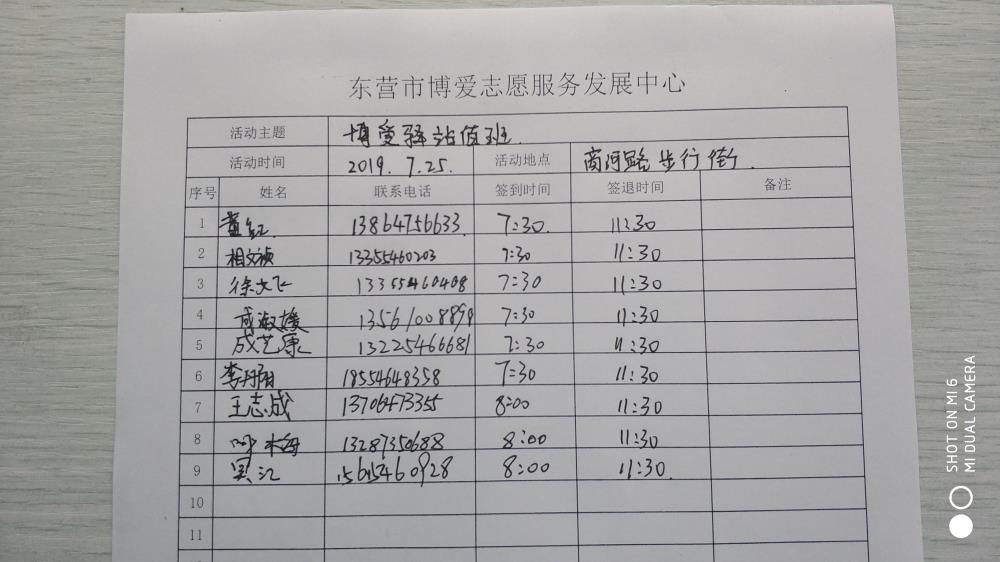 东营市博爱志愿服务发展中心
活动主题 博爱驿站值班.
活动时间 2019. 7.25. 活动地点 商河路步行街.
序号 姓名 联系电话 签到时间 签退时间 备注
1 董红. 13864756633. 7:30. 11:30
2 相文祯 13355460203 7:30 11:30
3 徐大飞 13355460408 7:30 11:30
4 成淑媛 13561008898 7:30 11:30
5 成艺康 13225466681 7:30 11:30
6 李丹丹 18554648358 7:30 11:30
7 王志成 13706473355 8:00 11:30
8 梅 13287350688 8:00 11:30
9 吴汇 15615460928 8:00 11:30.
10
11
SHOT ON MI 6
MI DUAL CAMERA